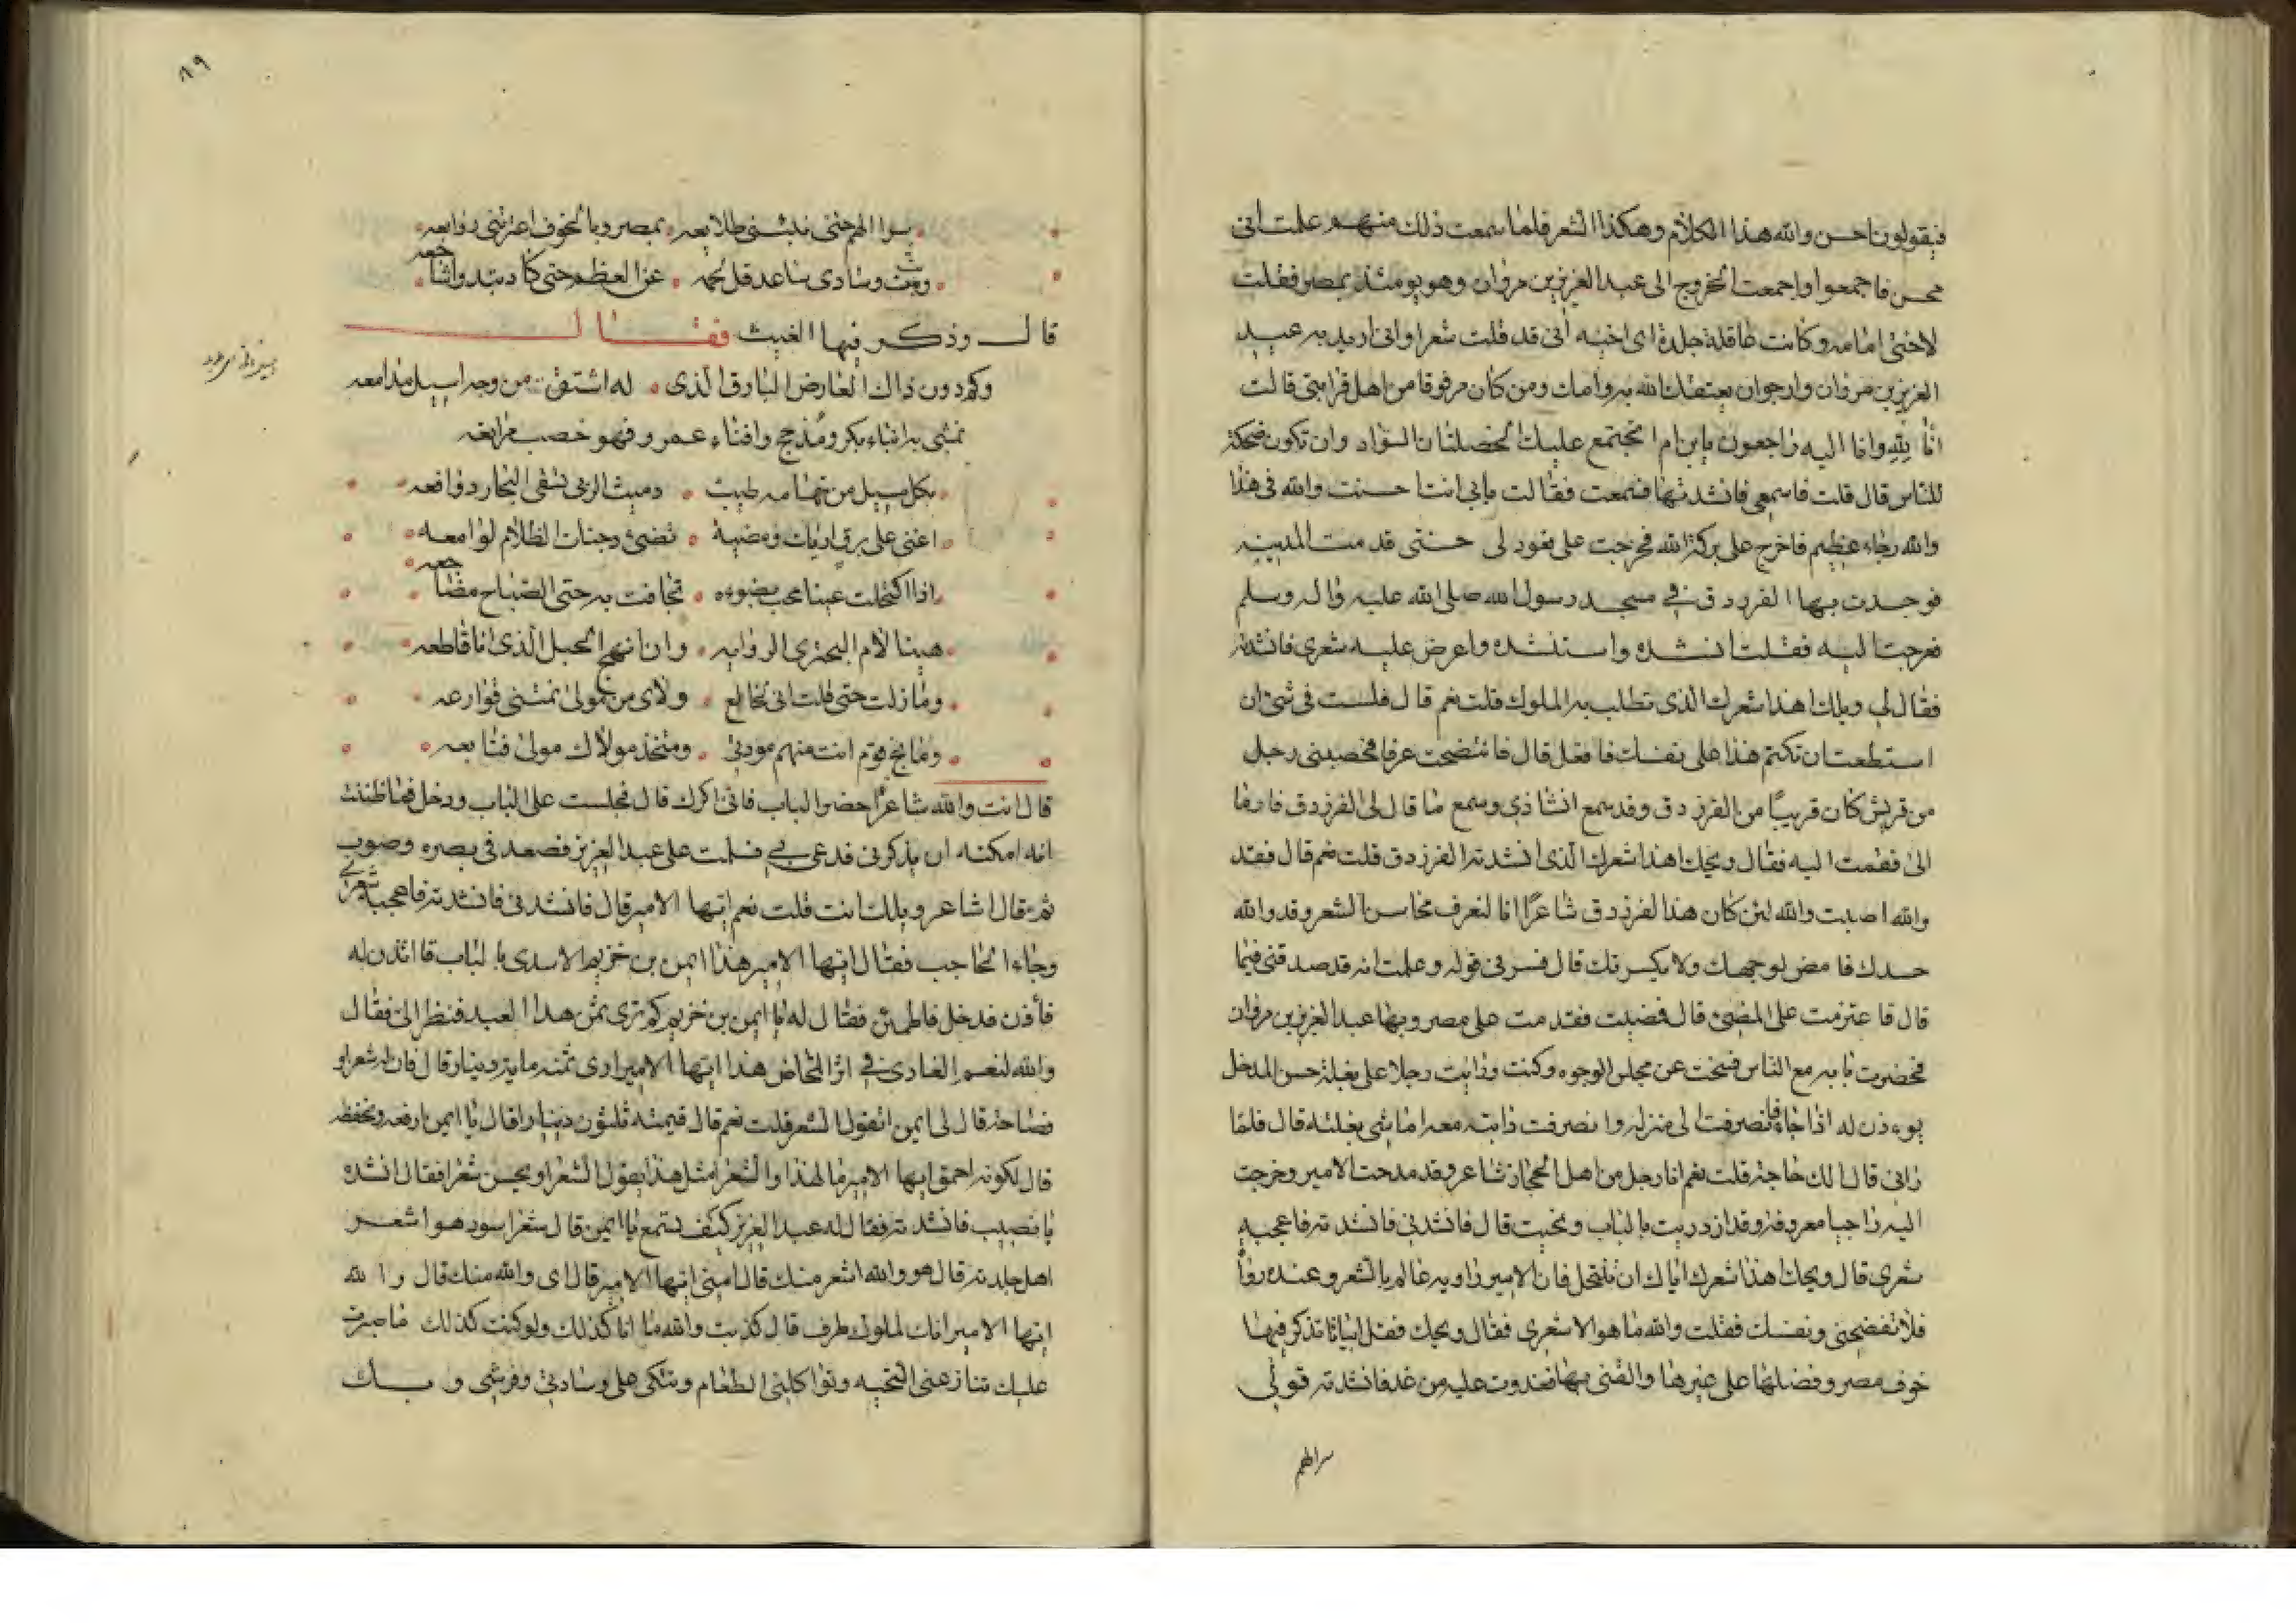 فيقولون احسن والله هذا الكلام وهكذا الشعر فلما سمعت ذلك منهم علمت انى
محسن فاجمعوا واجمعت الخروج الى عبد العزيز بن مروان وهو يومئذ بمصر فقلت
لاختى امامه وكانت عاقلة جلدة اى اخيه انى قد قلت شعرا وانى اريد به عبد
العزيز بن مروان وارجوان يعتقك الله به وامك ومن كان مرقوقا من اهل قرابتى قالت
انا لله وانا اليه راجعون يابن ام اتجتمع عليك الخصلتان السواد وان تكون ضحكة
للناس قال قلت فاسمعى فانشدتها فسمعت فقالت بابى انت احسنت والله فى هذا
والله رجاء عظيم فاخرج على بركة الله فخرجت على قعود لى حتى قدمت المدينه
فوجدت بها الفرزدق فى مسجد رسول الله صلى الله عليه واله وسلم
فعرجت اليه فقلت انشده واستنشده واعرض عليه شعرى فانشدته
فقال لى ويلك اهذا شعرك الذى تطلب به الملوك قلت نعم قال فلست فى شئ ان
استطعت ان تكتم هذا على نفسك فافعل قال فانتضحت عرقا فحصبنى رجل
من قريش كان قريبا من الفرزدق وقد سمع انشادى وسمع ما قال لى الفرزدق فاوما
الى فقمت اليه فقال ويحك اهذا شعرك الذى انشدته الفرزدق قلت نعم قال فقد
والله اصبت والله لئن كان هذا الفرزدق شاعرا انا لنعرف محاسن الشعر وقد والله
حسدك فامض لوجهك ولا يكسرنك قال فسرنى قوله وعلمت انه قد صدقنى فيما
قال فاعتزمت على المضى قال فمضيت فقدمت على مصر وبها عبد العزيز بن مروان
فحضرت بابه مع الناس فنحيت عن مجلس الوجوه وكنت ورايت رجلا على بغلة حسن المدخل
يوءذن له اذا جاء فانصرفت الى منزله وانصرفت دابته معه اماشى بغلته قال فلما
رانى قال الك حاجة قلت نعم انا رجل من اهل الحجاز شاعر وقد مدحت الامير وخرجت
اليه راجيا معروفه وقد ازدريت بالباب ونحيت قال فانشدنى فانشدته فاعجبه
شعرى قال ويحك اهذا شعرك اياك ان تنتحل فان الامير راويه عالم بالشعر وعنده رواة
فلا تفضحنى ونفسك فقلت والله ما هو الا شعرى فقال ويحك فقل ابياتا تذكر فيها
خوف مصر وفضلها على غيرها والقنى بها فغدوت عليه من غد فانشدته قولى
سرا الهم
٨٩
سرا الهم حتى بيتتنى طلايعه بمصر وبالخوف اعترتنى روايعه
وبت وسادى ساعد قل لحمه عن العظم حتى كاد تبدو اشاجعه
قال وذكر فيها الغيث فقال
وكم دون ذاك العارض البارق الذى له اشتقت من وجه اسيل مدامعه
تمشى به ابناء بكر ومذحج وافناء عمرو فهو خصب مرابعه
بكل مسيل من تهامه طيب دميث الربى تسقى البحار دوافعه
اعنى على برق اريك وميضه تضئ دجنات الظلام لوامعه
اذا اكتحلت عينا محب بضوءه تجافت به حتى الصباح مضاجعه
هنيئا لام البحترى الروايه وان انهج الحبل الذى انا قاطعه
وما زلت حتى قلت انى لخالع ولاى من مولى نمتنى قوارعه
ومانح قوم انت منهم مودتى ومتخذ مولاك مولى فتابعه
قال انت والله شاعر احضر الباب فانى اذكرك قال فجلست على الباب ودخل فما ظننت
انه امكنه ان يذكرنى فدعى بى فسلمت على عبد العزيز فصعد فى بصره وصوب
ثم قال اشاعر ويلك انت قلت نعم ايها الامير قال فانشدنى فانشدته فاعجبه شعرى
وجاء الحاجب فقال ايها الامير هذا ايمن بن خزيم الاسدى بالباب قال ائذن له
فاذن فدخل فاطمئن فقال له يا ايمن بن خزيم كم ترى ثمن هذا العبد فنظر الى فقال
والله لنعم الغادى فى اثر المخاض هذا ايها الامير ارى ثمنه مايه دينار قال فان له شعرا و
فصاحة قال لى ايمن اتقول الشعر قلت نعم قال قيمته ثلثون دينارا قال يا ايمن ارفعه وتخفضه
قال لكونه احمق ايها الامير ما لهذا والشعر امثل هذا يقول الشعر او يحسن شعرا فقال انشده
يا نصيب فانشدته فقال له عبد العزيز كيف تسمع يا ايمن قال شعر اسود هو اشعر
اهل جلدته قال هو والله اشعر منك قال امنى ايها الامير قال اى والله منك قال والله
ايها الامير انك لملول طرف قال كذبت والله ما انا كذلك ولو كنت كذلك ما صبرت
عليك تنازعنى التحيه وتواكلنى الطعام وتتكى على وسادتى وفرشى وبك